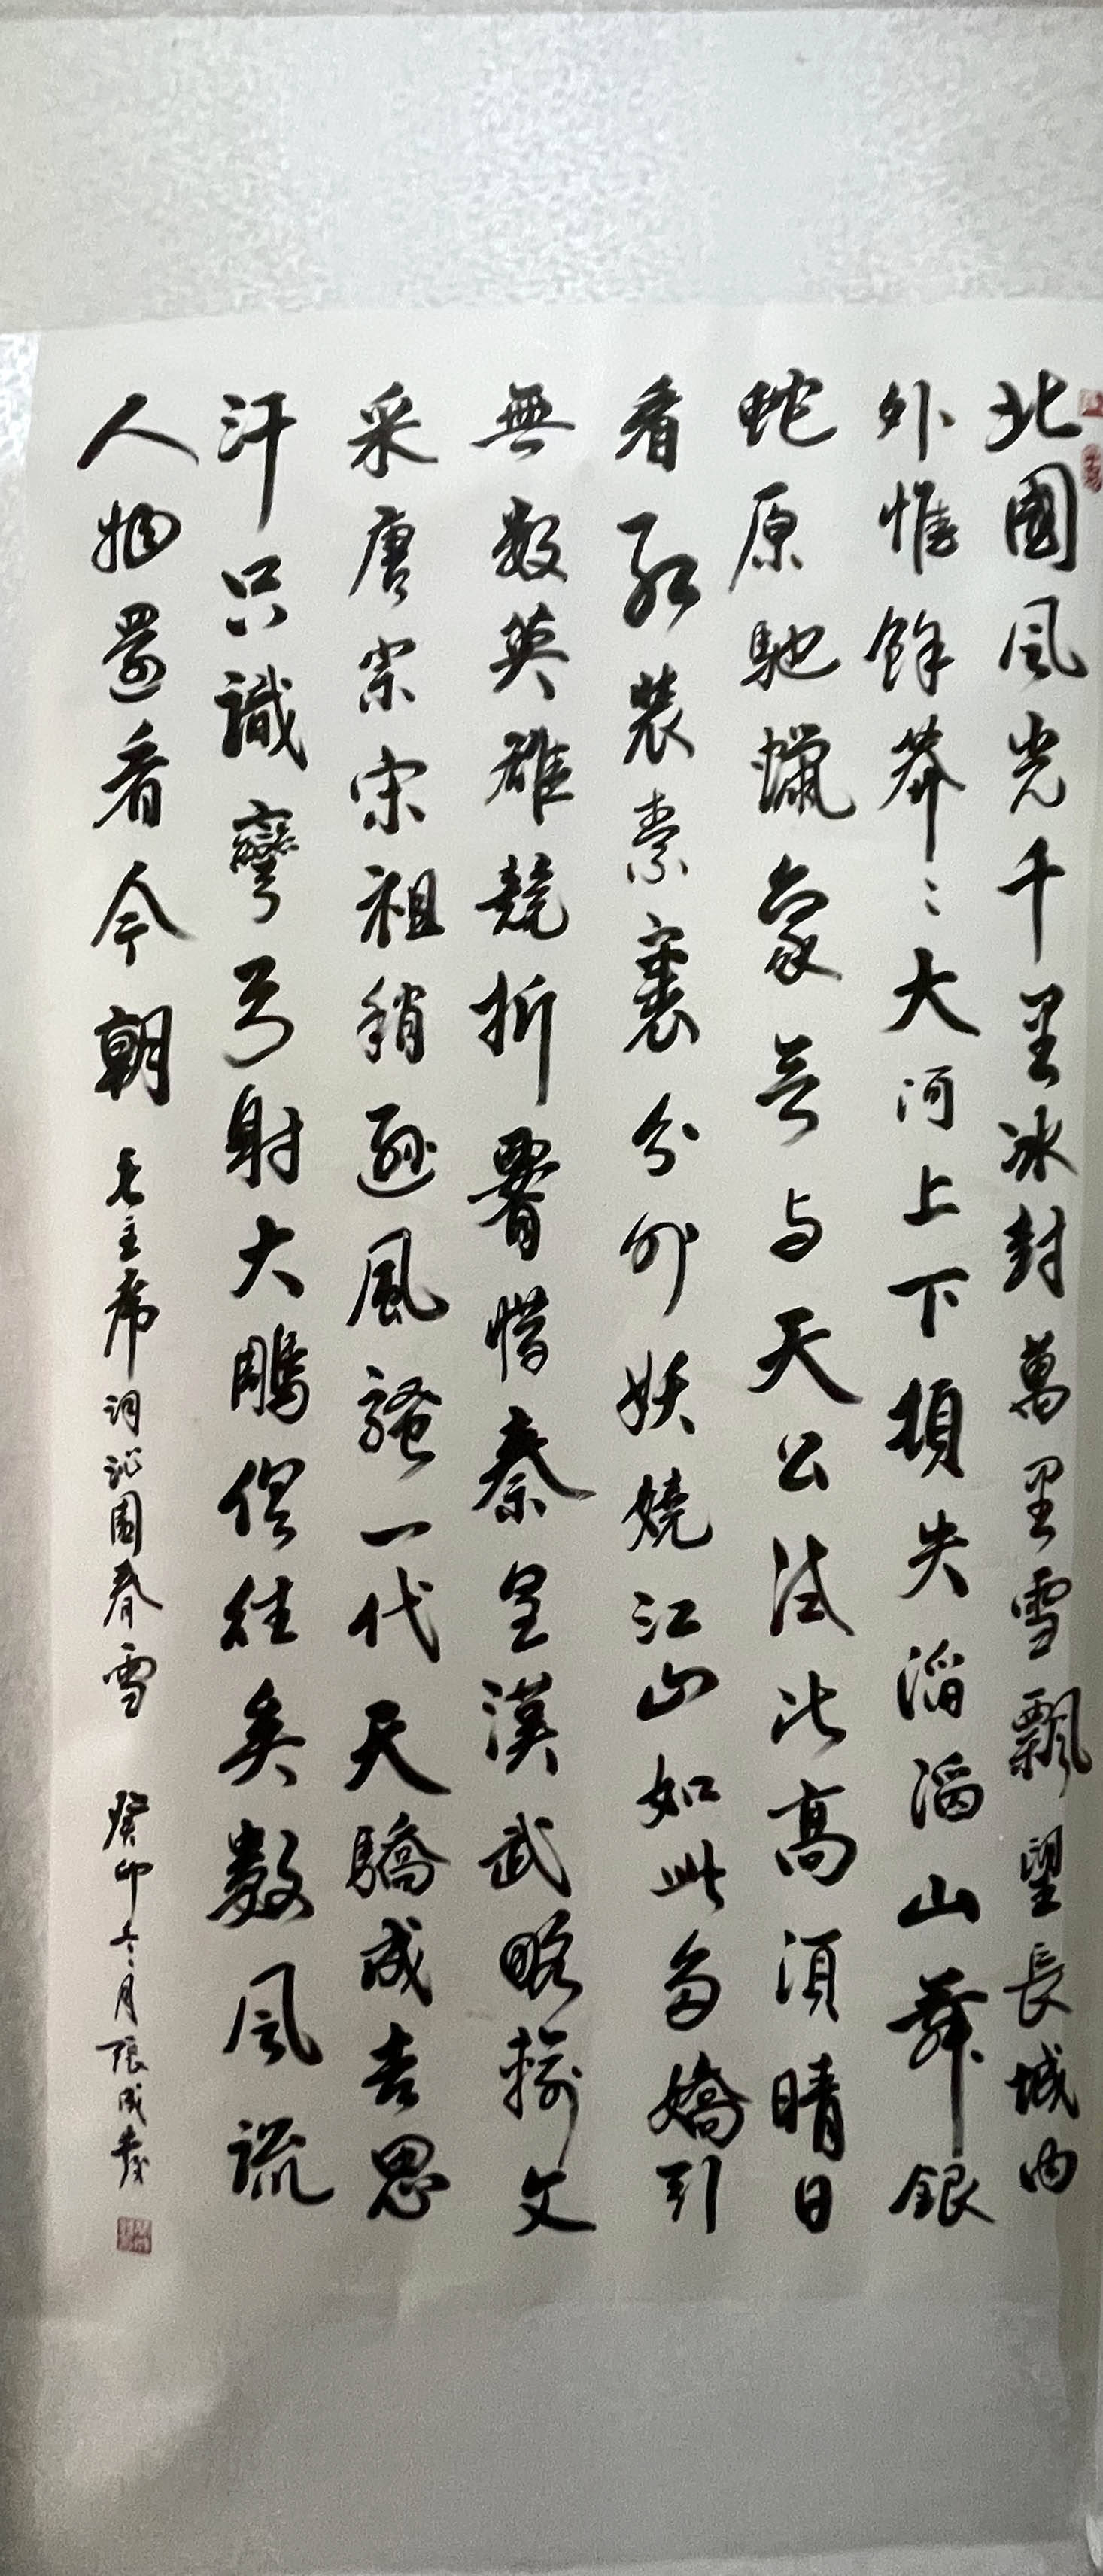 北國风光千里冰封萬里雪飄望長城內
外惟餘莽〻大河上下頓失滔滔山舞銀
蛇原馳蠟象与天公試比高須晴日
看紅裝素裹分外妖嬈江山如此多嬌引
無數英雄競折腰惜秦皇漢武略輸文
采唐宗宋祖稍遜風騷一代天驕成吉思
汗只識彎弓射大鵰俱往矣數风流
人物還看今朝 毛主席詞沁園春雪 癸卯冬月張成